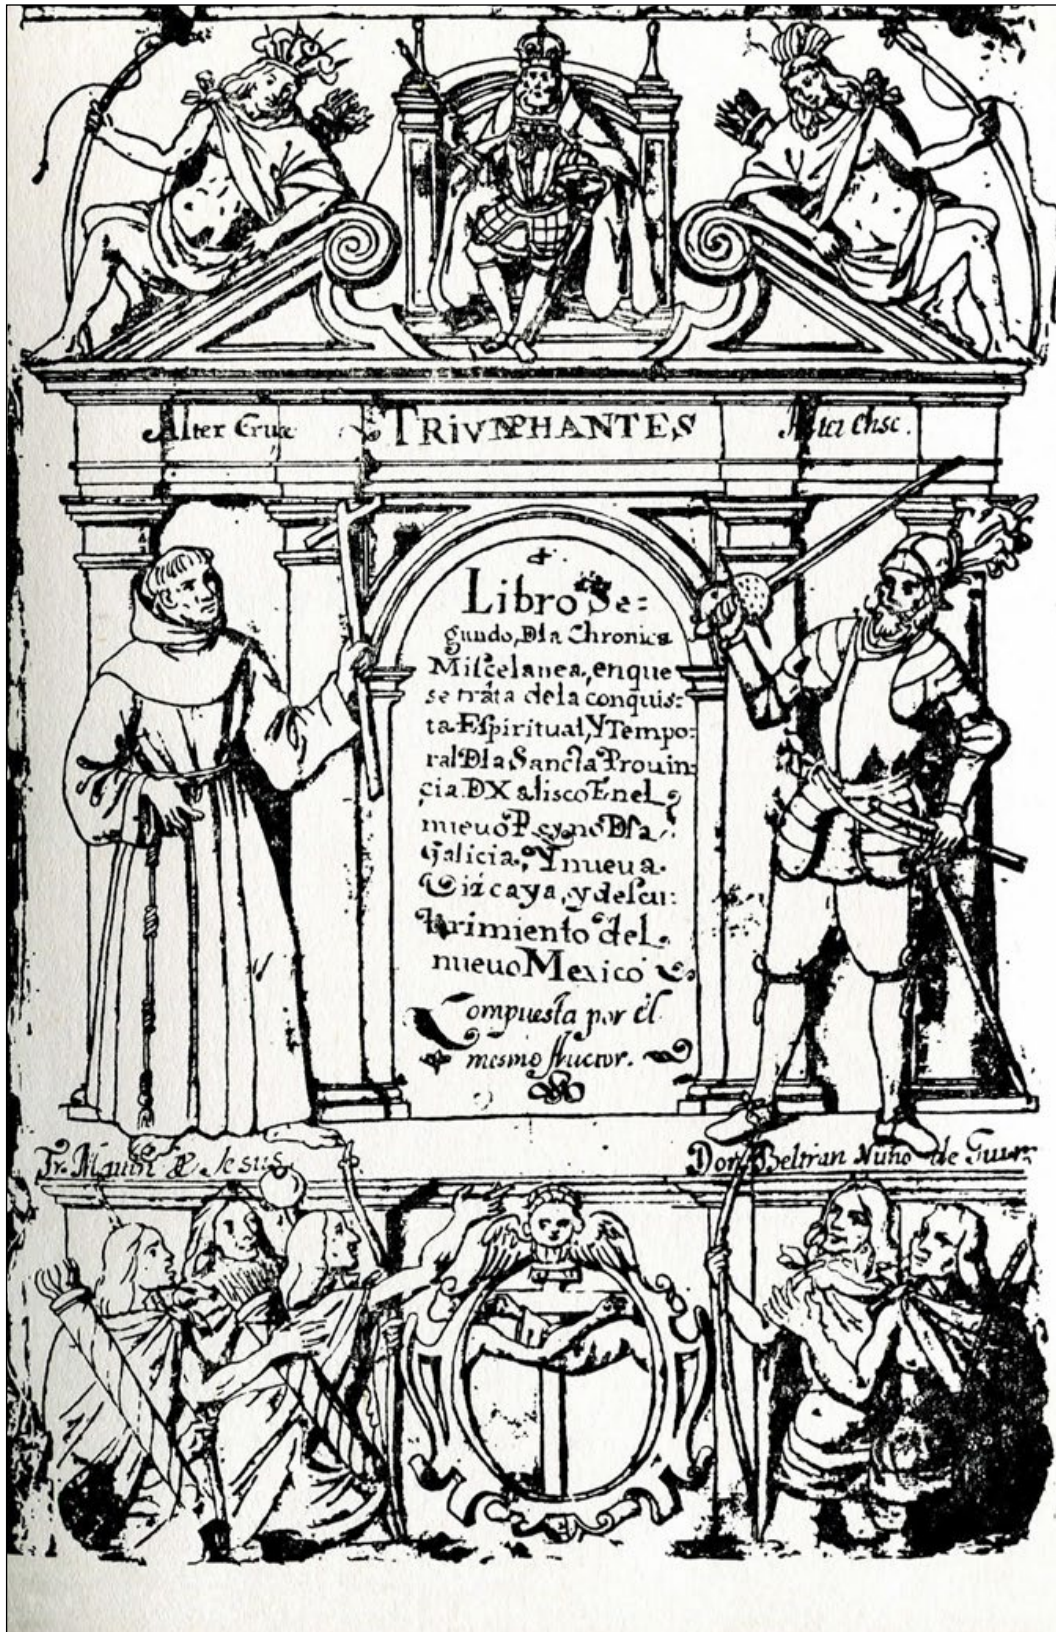 Alter Cruce TRIVMPHANTES Alter Ense.
Libro Se=
gundo, Dla Chronica
Miscelanea, en que
se trata de la conquis=
ta Espiritual, Y Tempo=
ral Dla Sancta Prouin=
cia D Xalisco En el
nueuo Reyno Dla
Galicia, Y nueua
Vizcaya, y descu=
brimiento del
nueuo Mexico
Compuesta por el
mesmo Auctor.
Fr. Martin de Jesus
Don Beltran Nuño de